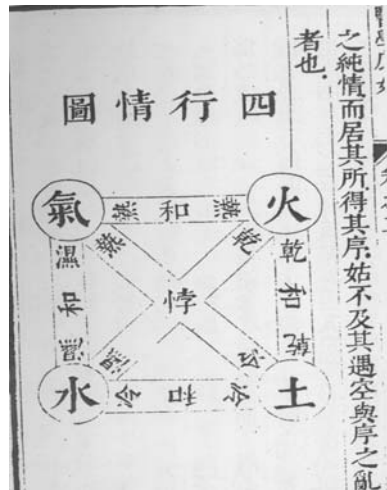 之純情而居其所得其序姑不及其遇空與序之亂
者也
四行情圖
火
熱和熱
氣
乾和乾
濕和濕
乾
熱
悖
冷
濕
土
冷和冷
水